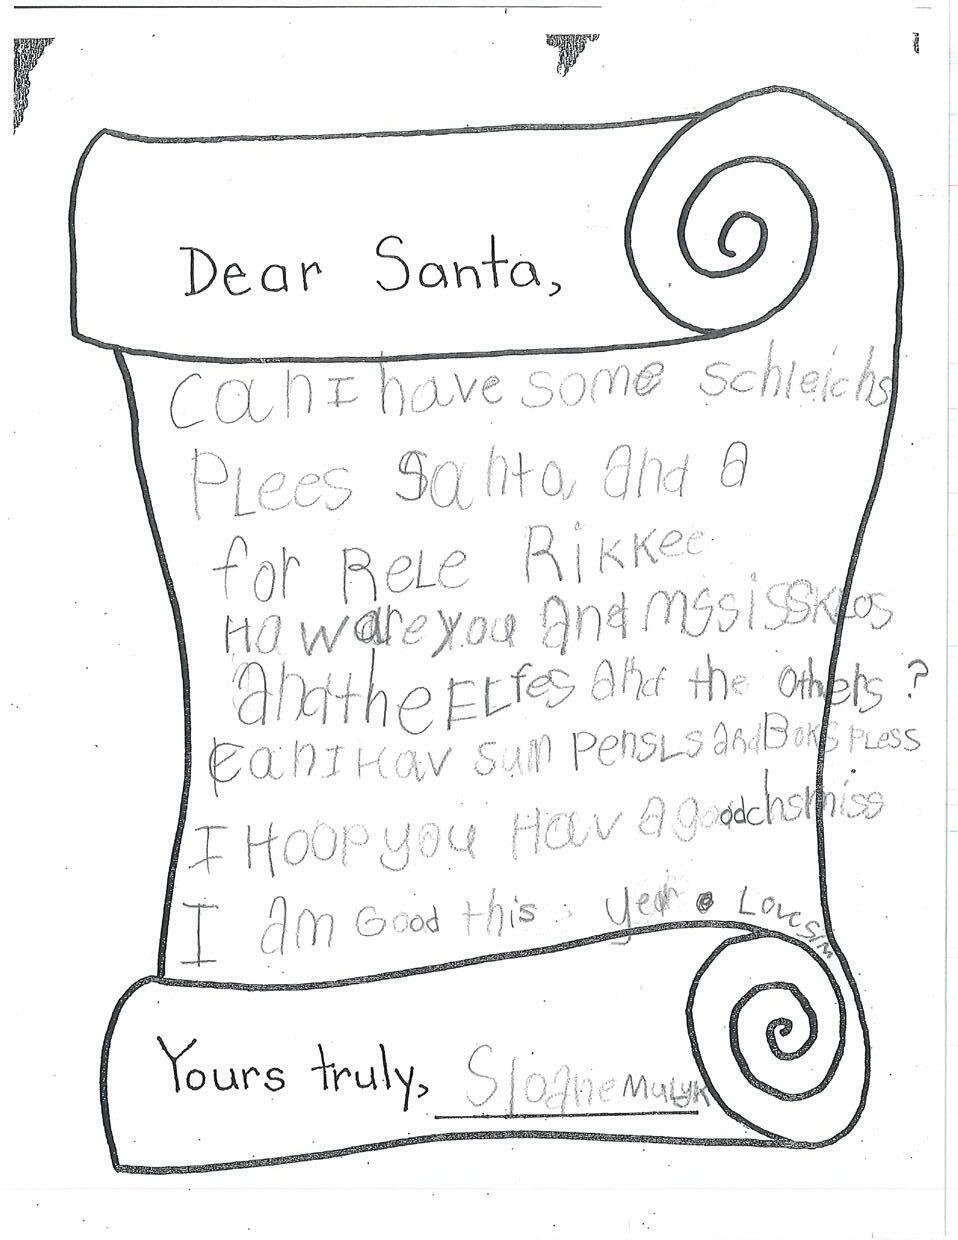 Dear Santa,
Can I have some schleichs
PLees Santa and a
for ReLe Rikkee
How are you and mssiss Klos
and the ELfes and the others ?
Can I Hav sum PensLs and Boks PLess
I Hoop you Hav a good chsrmiss
I am Good this year. Love S/M
Yours truly, Sloane Mulyk